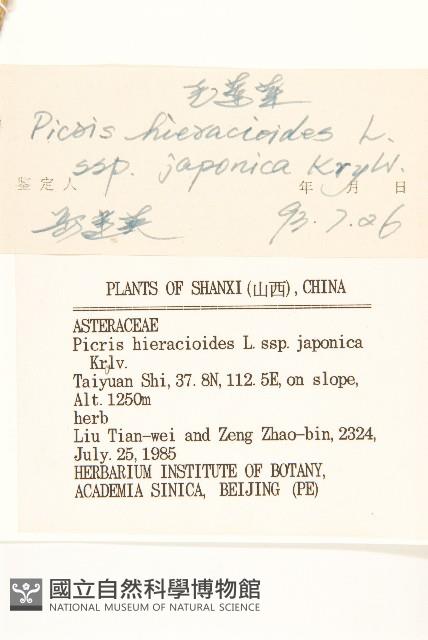 毛蓮菜
Picris hieracioides L.
ssp. japonica KryW.
鉴定人 年 月 日
93.7.26
PLANTS OF SHANXI (山西), CHINA
ASTERACEAE
Picris hieracioides L. ssp. japonica
Krylv.
Taiyuan Shi, 37. 8N, 112. 5E, on slope,
Alt. 1250m
herb
Liu Tian-wei and Zeng Zhao-bin, 2324,
July. 25, 1985
HERBARIUM INSTITUTE OF BOTANY,
ACADEMIA SINICA, BEIJING (PE)
國立自然科學博物館
NATIONAL MUSEUM OF NATURAL SCIENCE